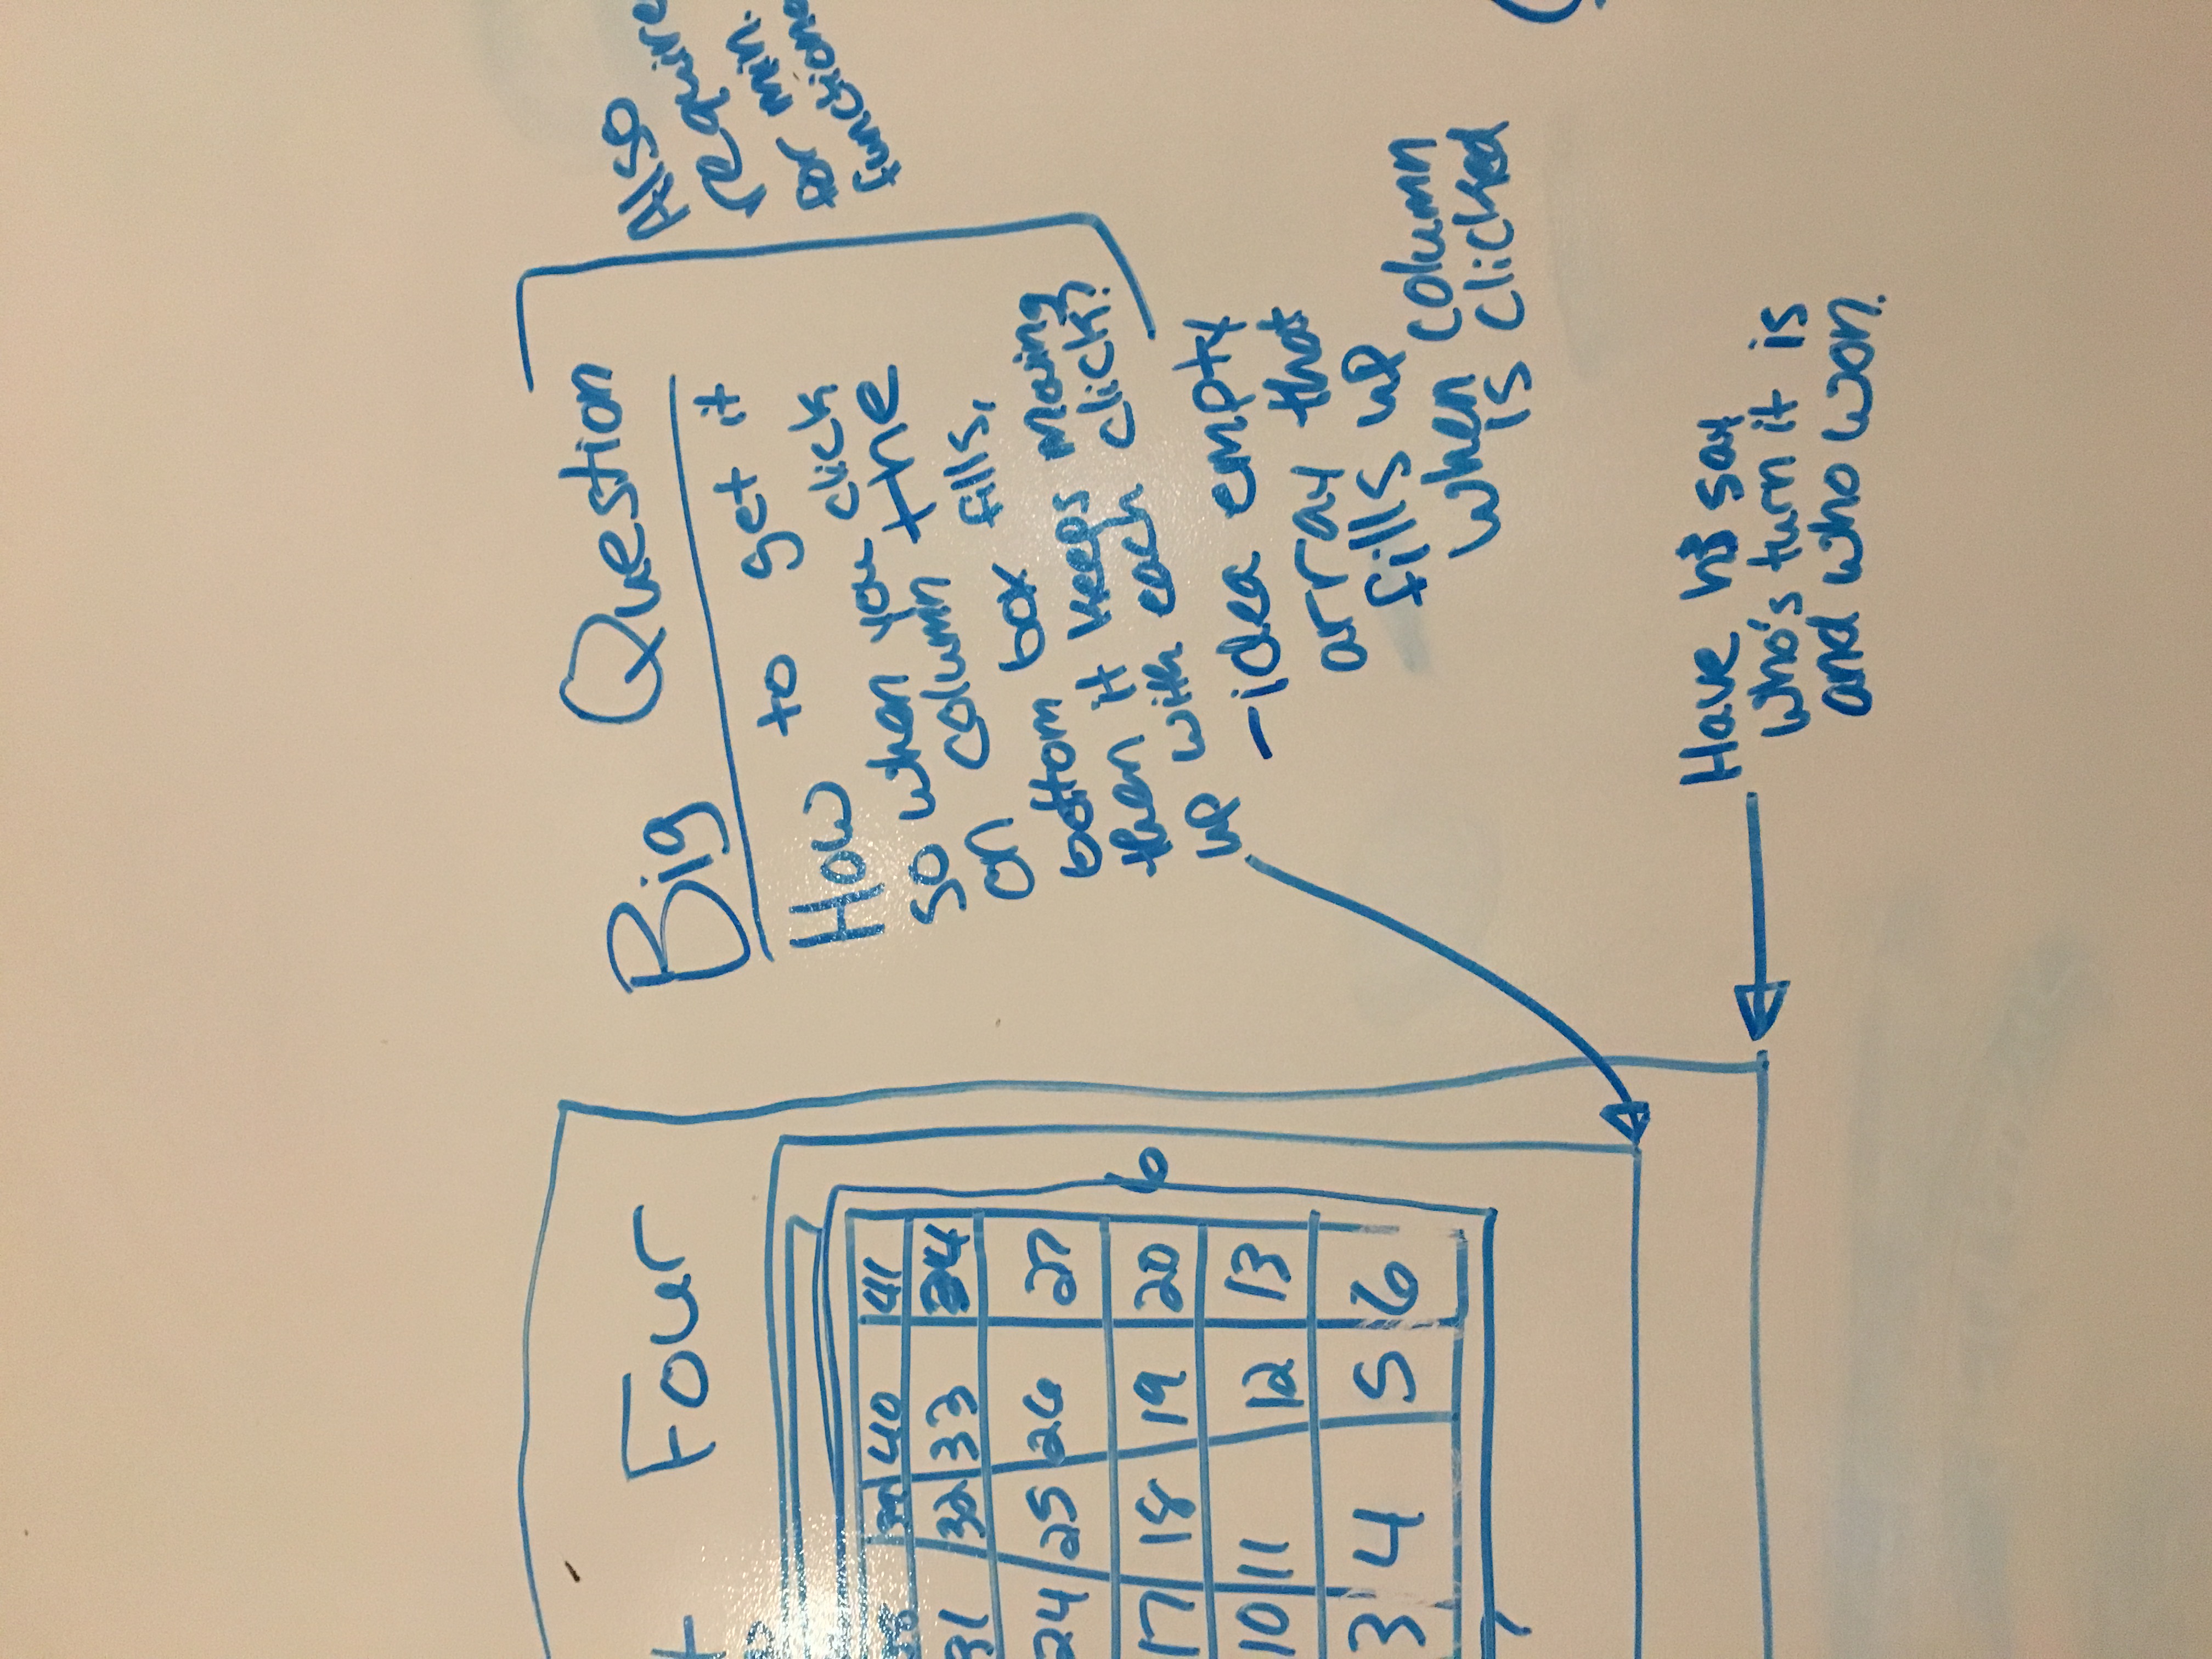 Four
40 41
31 32 33 34
24 25 26 27
17 18 19 20
10 11 12 13
3 4 5 6
6
7
Big Question
How to get it
so when you click
on column the
bottom box fills,
then it keeps moving
up with each click?
-idea empty
array that
fills up
when column
is clicked
Also
require
for min.
functiona
Have h3 say
who's turn it is
and who won.